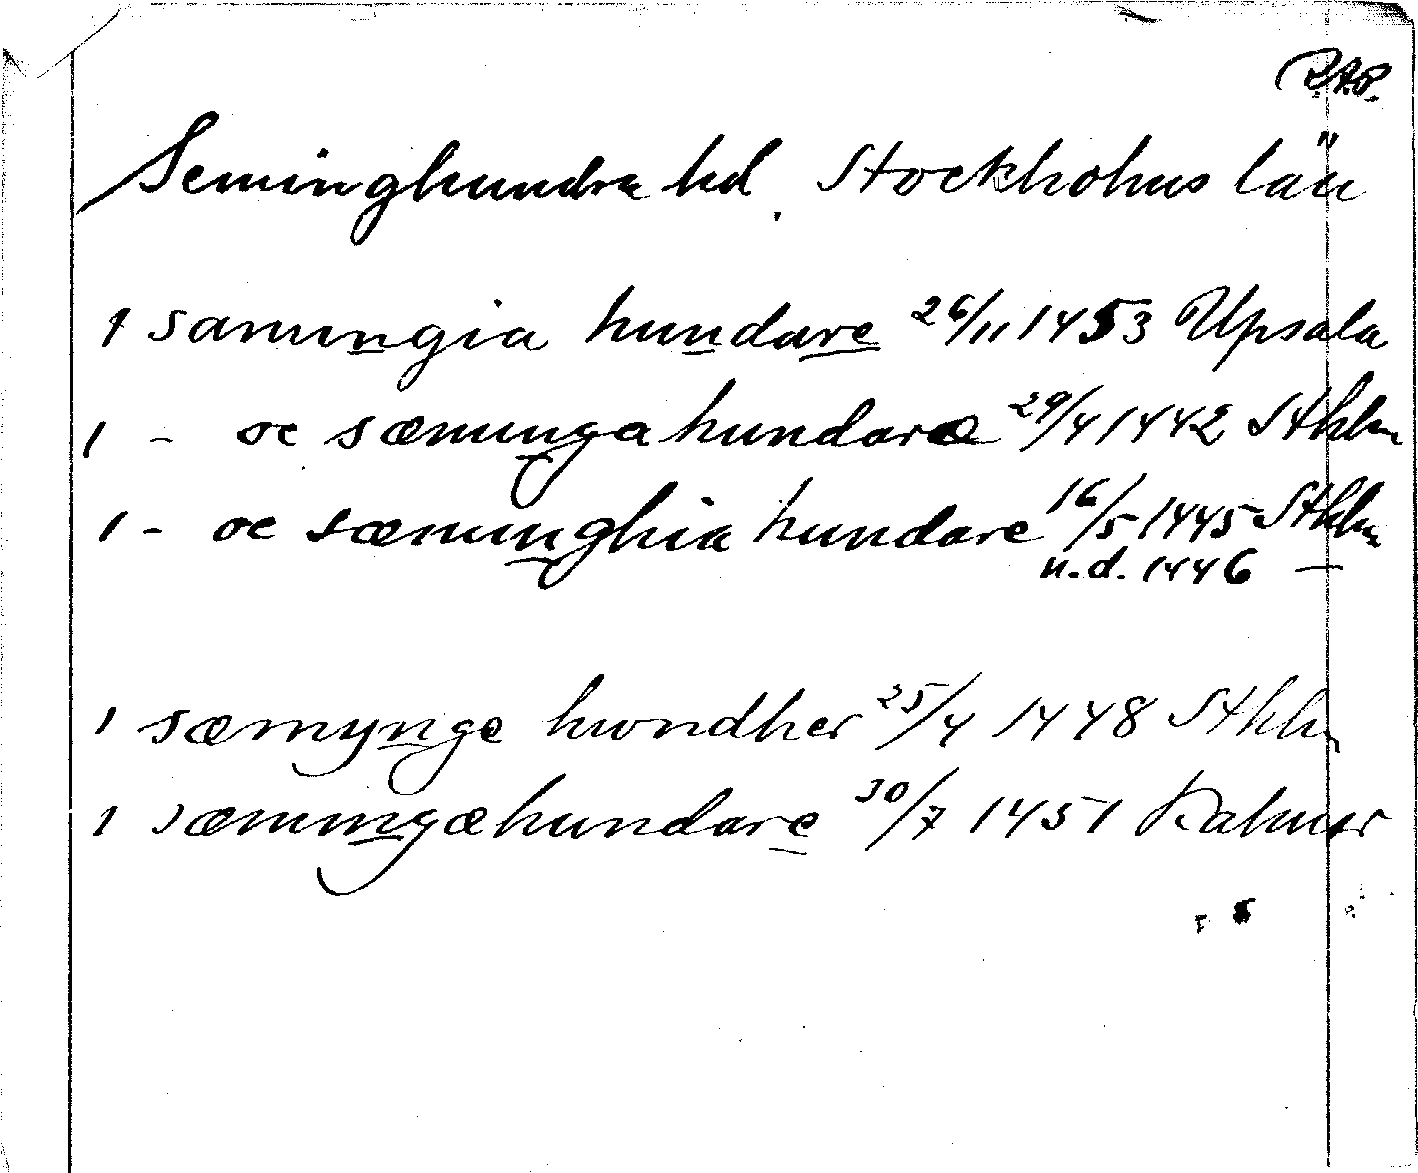 R.A.P.
Seminghundra hd. Stockholms län
1 samingia hundare 26/11 1453 Upsala
1 - oc sæminga hundaræ 29/4 1442 Sthlm
1 - oc sæminghia hundare 16/5 1445 Sthlm
u.d. 1446 —
1 sæmynge hwndher 25/4 1448 Sthlm
1 sæmingæhundare 30/7 1451 Kalmar